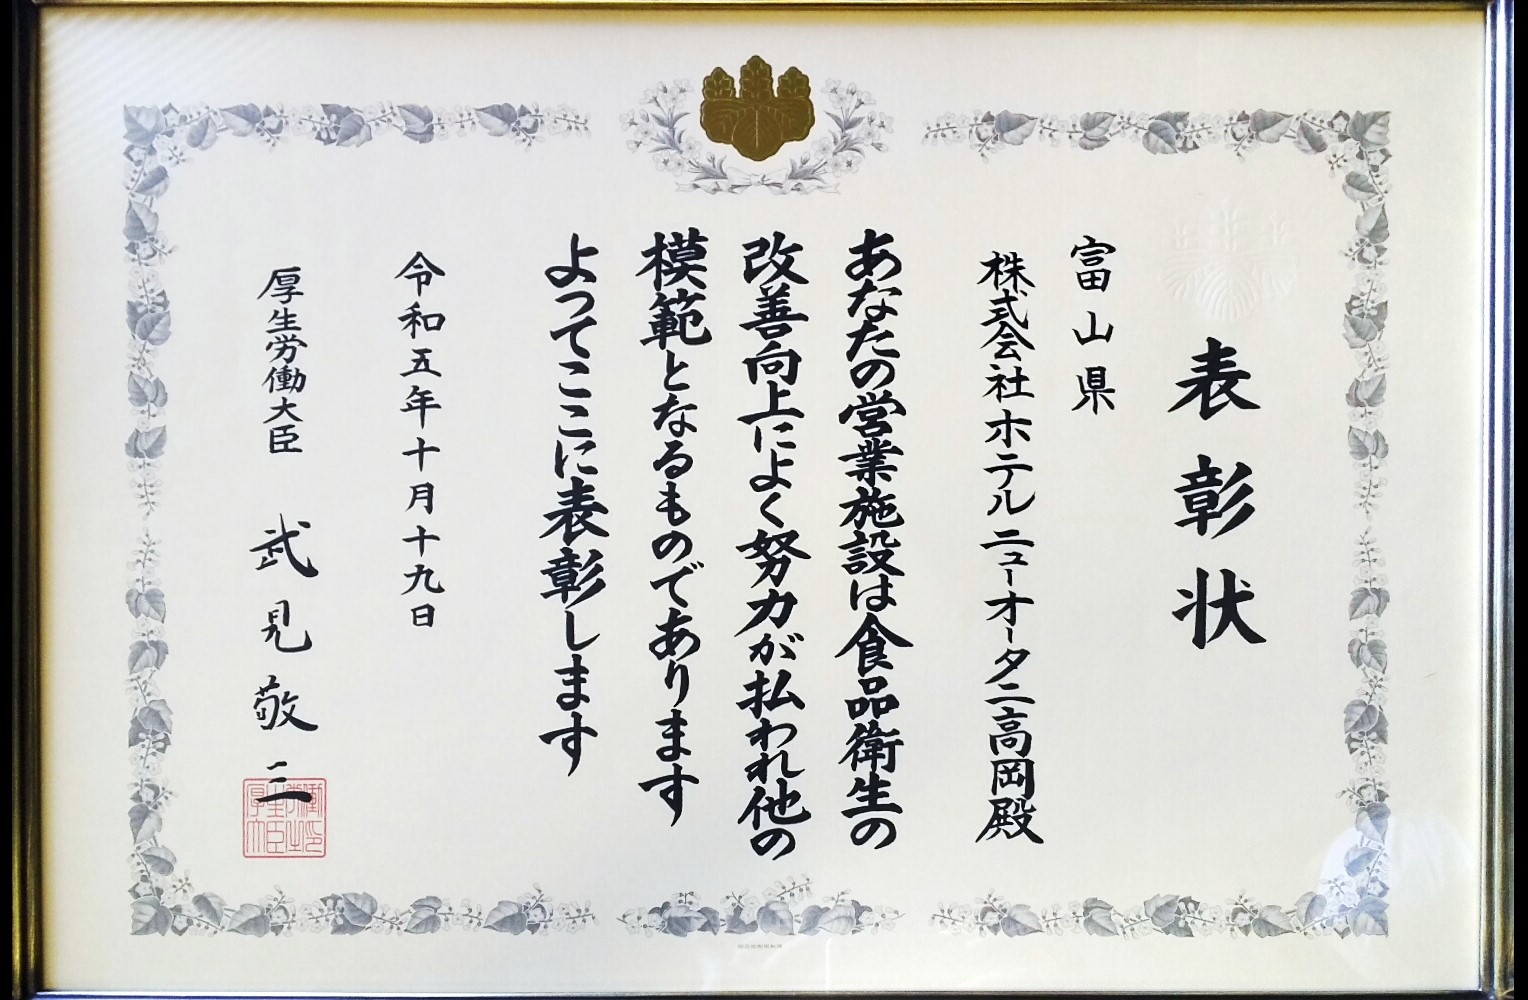 表彰状
富山県
株式会社ホテルニューオータニ高岡殿
あなたの営業施設は食品衛生の
改善向上によく努力が払われ他の
模範となるものであります
よってここに表彰します
令和五年十月十九日
厚生労働大臣 武見敬三